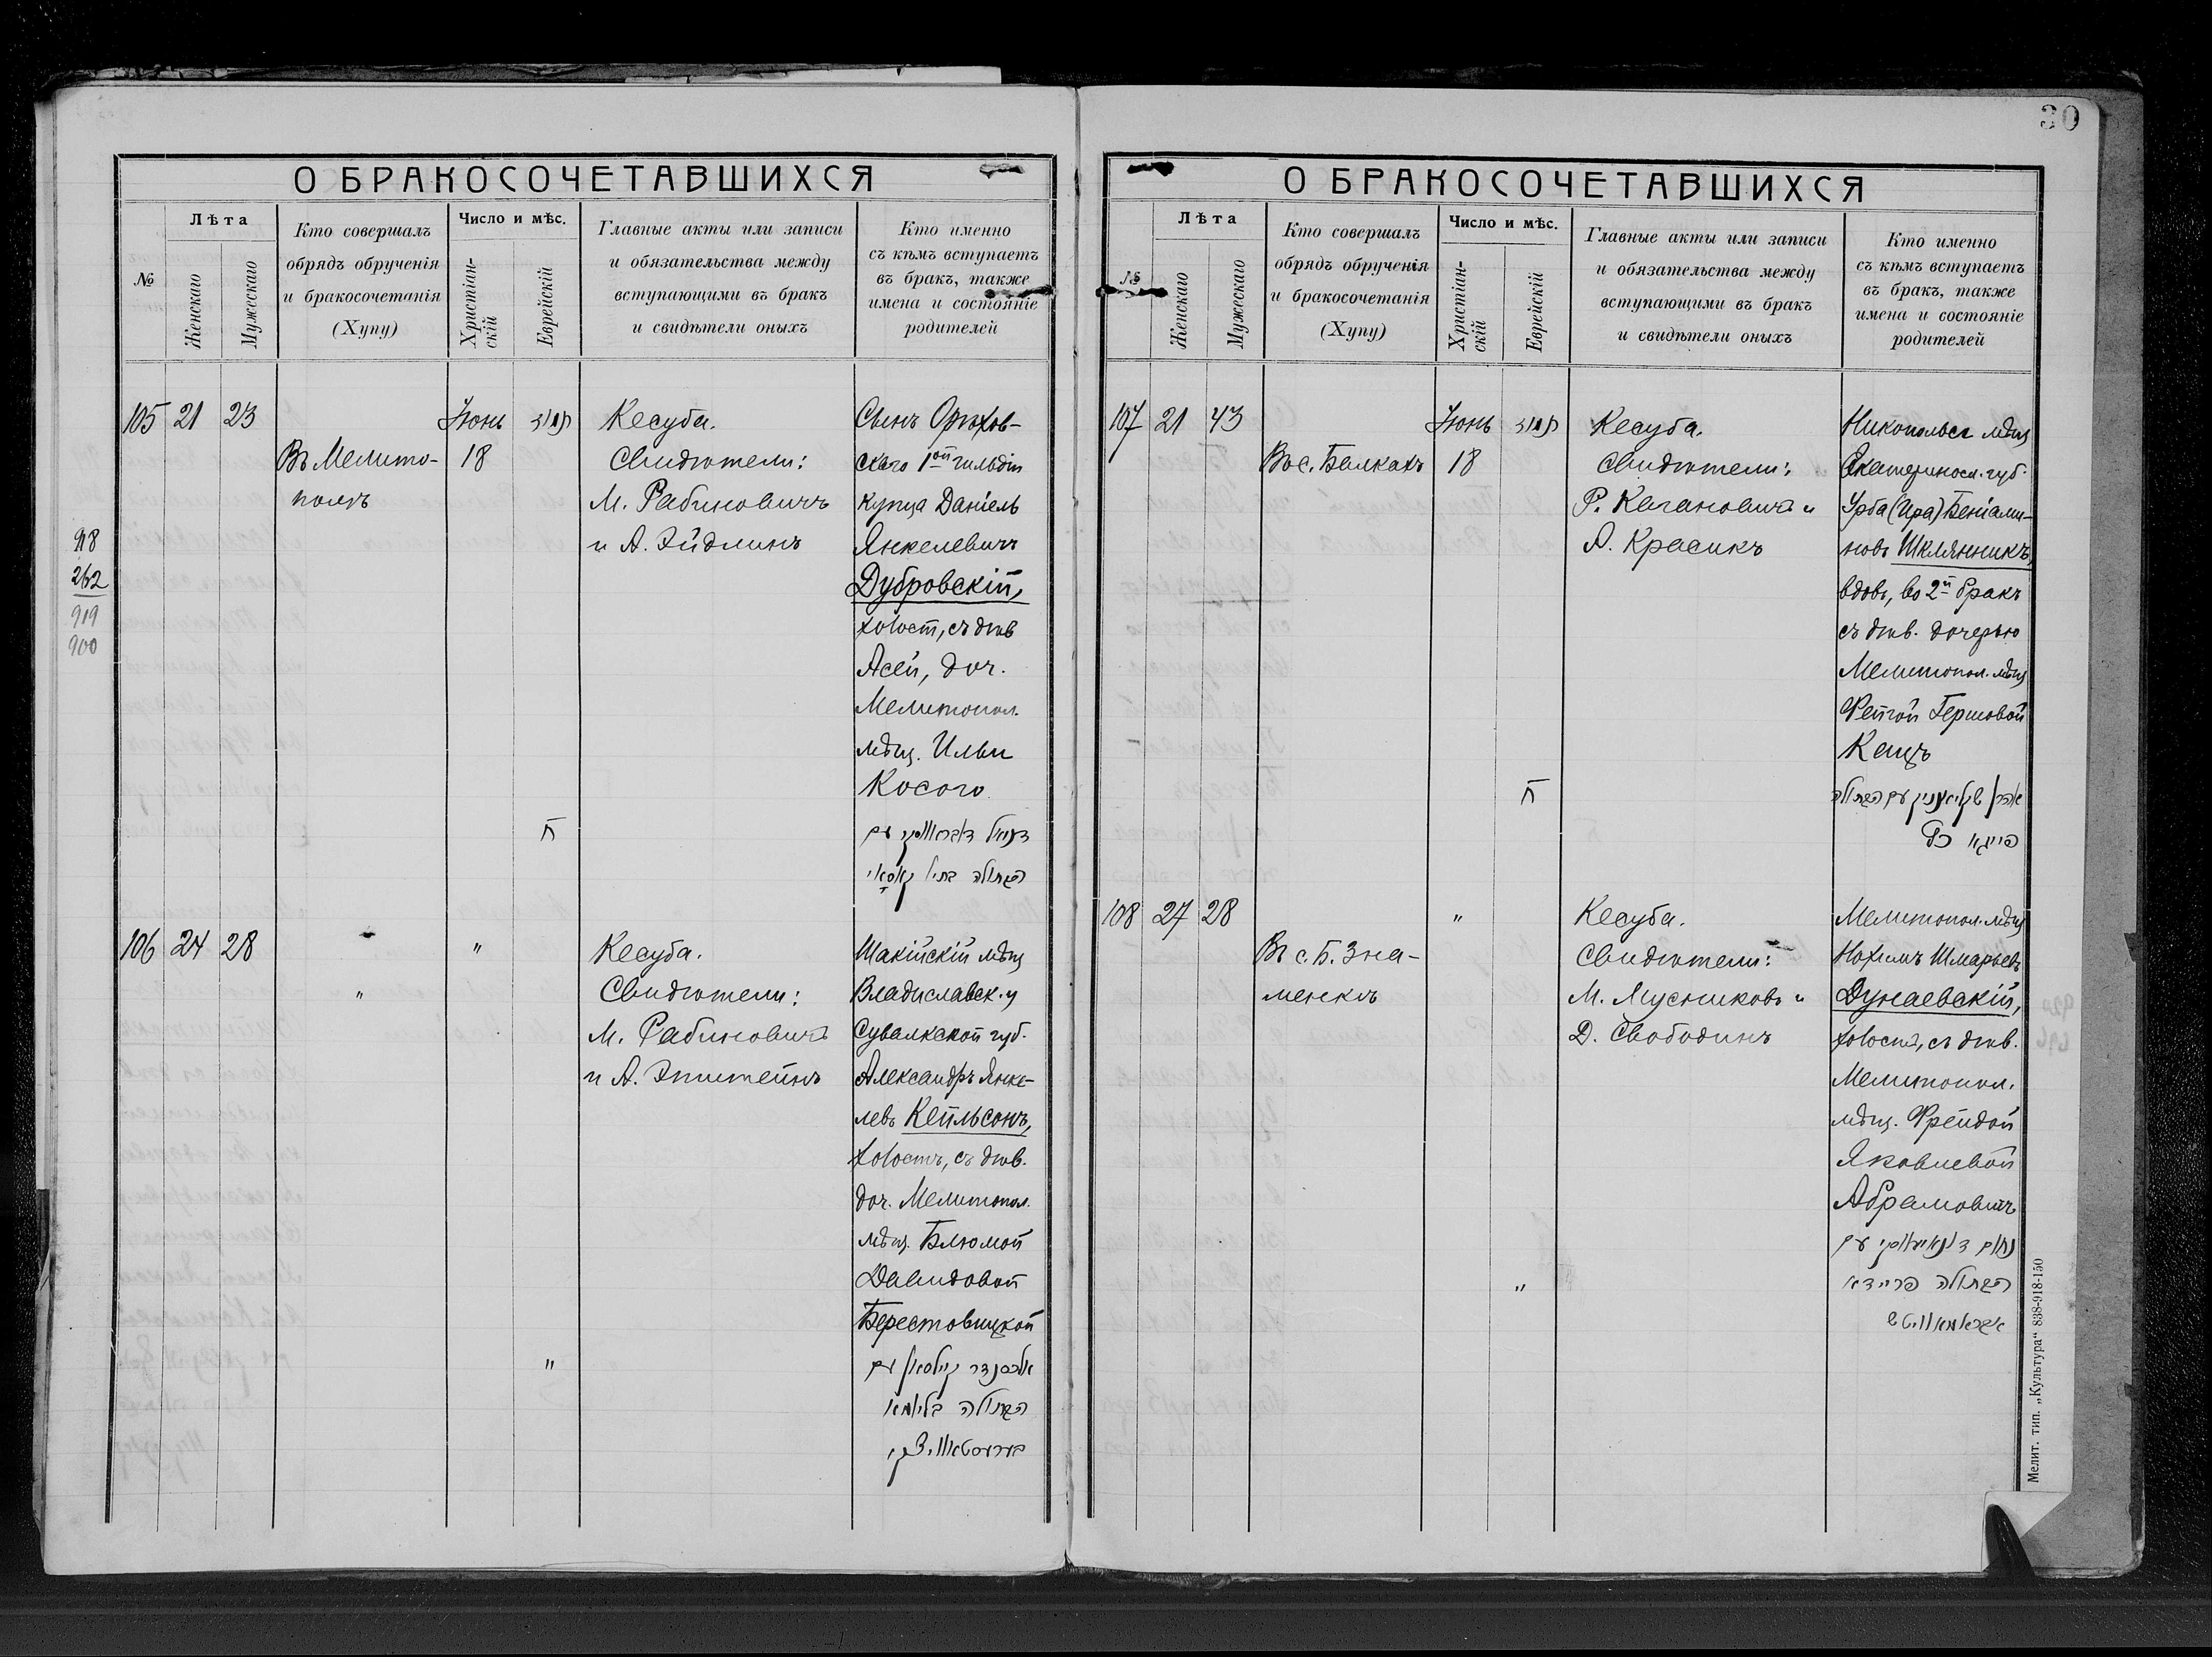 30
О БРАКОСОЧЕТАВШИХСЯ
№
Лѣта
Женскаго
Мужескаго
Кто совершалъ
обрядъ обрученія
и бракосочетанія
(Хупу)
Число и мѣс.
Христіан-
скій
Еврейскій
Главные акты или записи
и обязательства между
вступающими въ бракъ
и свидѣтели оныхъ
Кто именно
съ кѣмъ вступаетъ
въ бракъ, также
имена и состояніе
родителей
105 21 23
Въ Мелито-
полѣ
Іюнь
18
סיון
ח
Кесуба.
Свидѣтели:
М. Рабиновичъ
и А. Эйдлинъ
Сынъ Орѣхов-
скаго 1ой гильдіи
купца Даніель
Янкелевичъ
Дубровскій,
холост, съ дѣв
Асей, доч.
Мелитопол.
мѣщ. Ильи
Косого
דניאל דובראווסקי עם
הבתולה
918
262
919
900
106 24 28
"
"
"
Кесуба.
Свидѣтели:
М. Рабиновичъ
и А. Эпштейнъ
Шакійскій мѣщ
Владиславск. у
Сувалкской губ.
Александръ Янке-
левъ Кейльсонъ,
холостъ, съ дѣв.
доч. Мелитопол.
мѣщ. Блюмой
Давидовой
Берестовицкой
אלכסנדר קיילסאן עם
הבתולה בליומא
בערעסטאוויצקי
О БРАКОСОЧЕТАВШИХСЯ
№
Лѣта
Женскаго
Мужескаго
Кто совершалъ
обрядъ обрученія
и бракосочетанія
(Хупу)
Число и мѣс.
Христіан-
скій
Еврейскій
Главные акты или записи
и обязательства между
вступающими въ бракъ
и свидѣтели оныхъ
Кто именно
съ кѣмъ вступаетъ
въ бракъ, также
имена и состояніе
родителей
107 21 43
Въ с. Балкахъ
Іюнь
18
סיון
ח
Кесуба.
Свидѣтели:
Р. Кагановичъ и
А. Красикъ
Никопольск мѣщ
Екатериносл. губ.
Урба (Ира) Беніами-
новъ Шклянникъ,
вдовъ, во 2й бракъ
съ дѣв. дочерью
Мелитопол. мѣщ
Фейгой Гершовой
Кацъ
שקליאניק עם הבתולה
פייגא כץ
108 27 28
Въ с. Б. Зна-
менкѣ
"
"
Кесуба.
Свидѣтели:
М. Мусниковъ и
Д. Свободинъ
Мелитопол. мѣщ
Нохимъ Шмарьевъ
Дунаевскій,
холостъ, съ дѣв.
Мелитопол.
мѣщ. Фрейдой
Яковлевой
Абрамовичъ
נחום דונאיעווסקי עם
הבתולה פריידא
אבראמאוויטש
Мелит. тип. „Культура“ 838-918-150